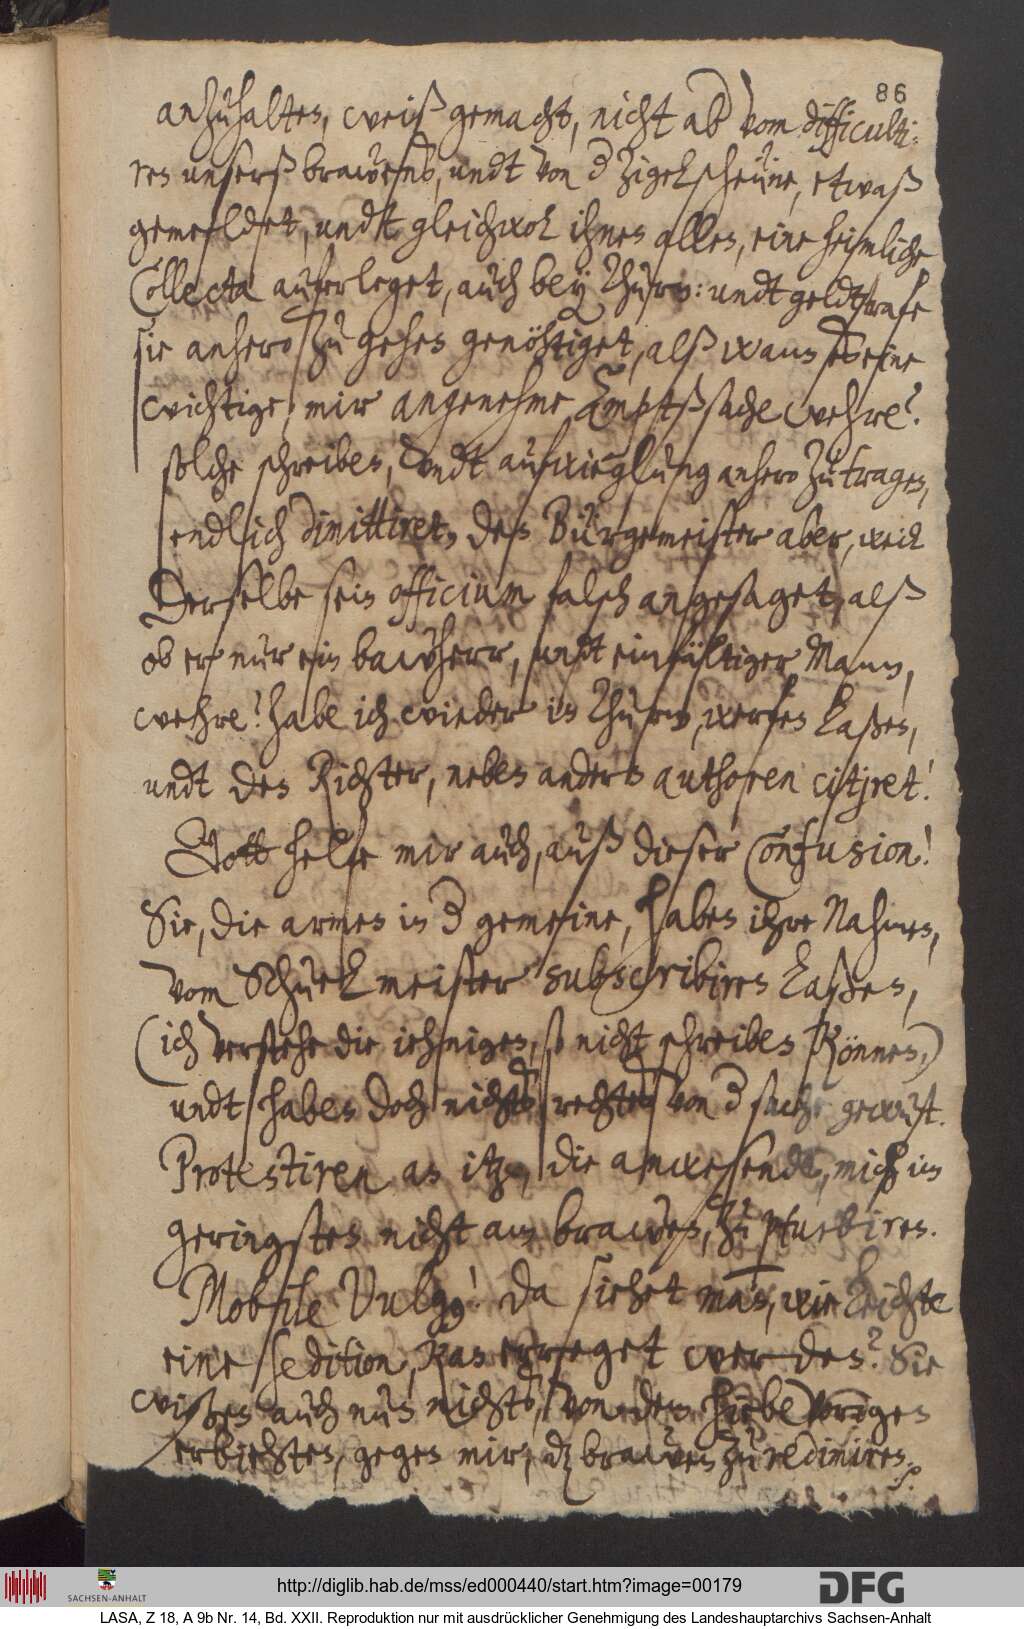 86
anzuhalten, weiß gemacht, nicht ab vom difficulti¬
ren unserß brawens, undt von der Zigelscheüne, etwaß
gemeldet, undt gleichwol ihnen allen, eine heimliche
Collecta auferleget, auch bey Thurm: undt geldtstrafe
sie anhero zu gehen genöhtiget, alß wann es eine
wichtige, mir angenehme Amptßsache wehre?
solche schreiben, undt aufwieglung anhero zu tragen,
endlich dimittiret, den Bürgemeister aber, weil
Derselbe sein officium falsch angesaget, alß
ob er nur ein bawherr, undt einfältiger Mann,
wehre? habe ich wieder in Thurm, werfen laßen,
undt den Richter, neben andern authoren citjret!
Gott helfe mir auch, auß dieser Confusion!
Sie, die armen in der gemeine, haben ihre Nahmen,
vom Schuelmeister subscribiren laßen,
(ich verstehe die iehnigen, so nicht schreiben können,)
undt haben doch nichts rechtes von der sache gewust.
Protestiren an itzo, die anwesende, mich im
geringsten nicht am brawen, zu turbiren.
Mobile Vulgus! da siehet man, wie leichte
eine sedition, kan erreget werden? Sie
wißen auch nun nichts, von dem hiebevorigen
erbiehten, gegen mir, das brawen zu redimiren.
http://diglib.hab.de/mss/ed000440/start.htm?image=00179
SACHSEN-ANHALT
DFG
LASA, Z 18, A 9b Nr. 14, Bd. XXII. Reproduktion nur mit ausdrücklicher Genehmigung des Landeshauptarchivs Sachsen-Anhalt